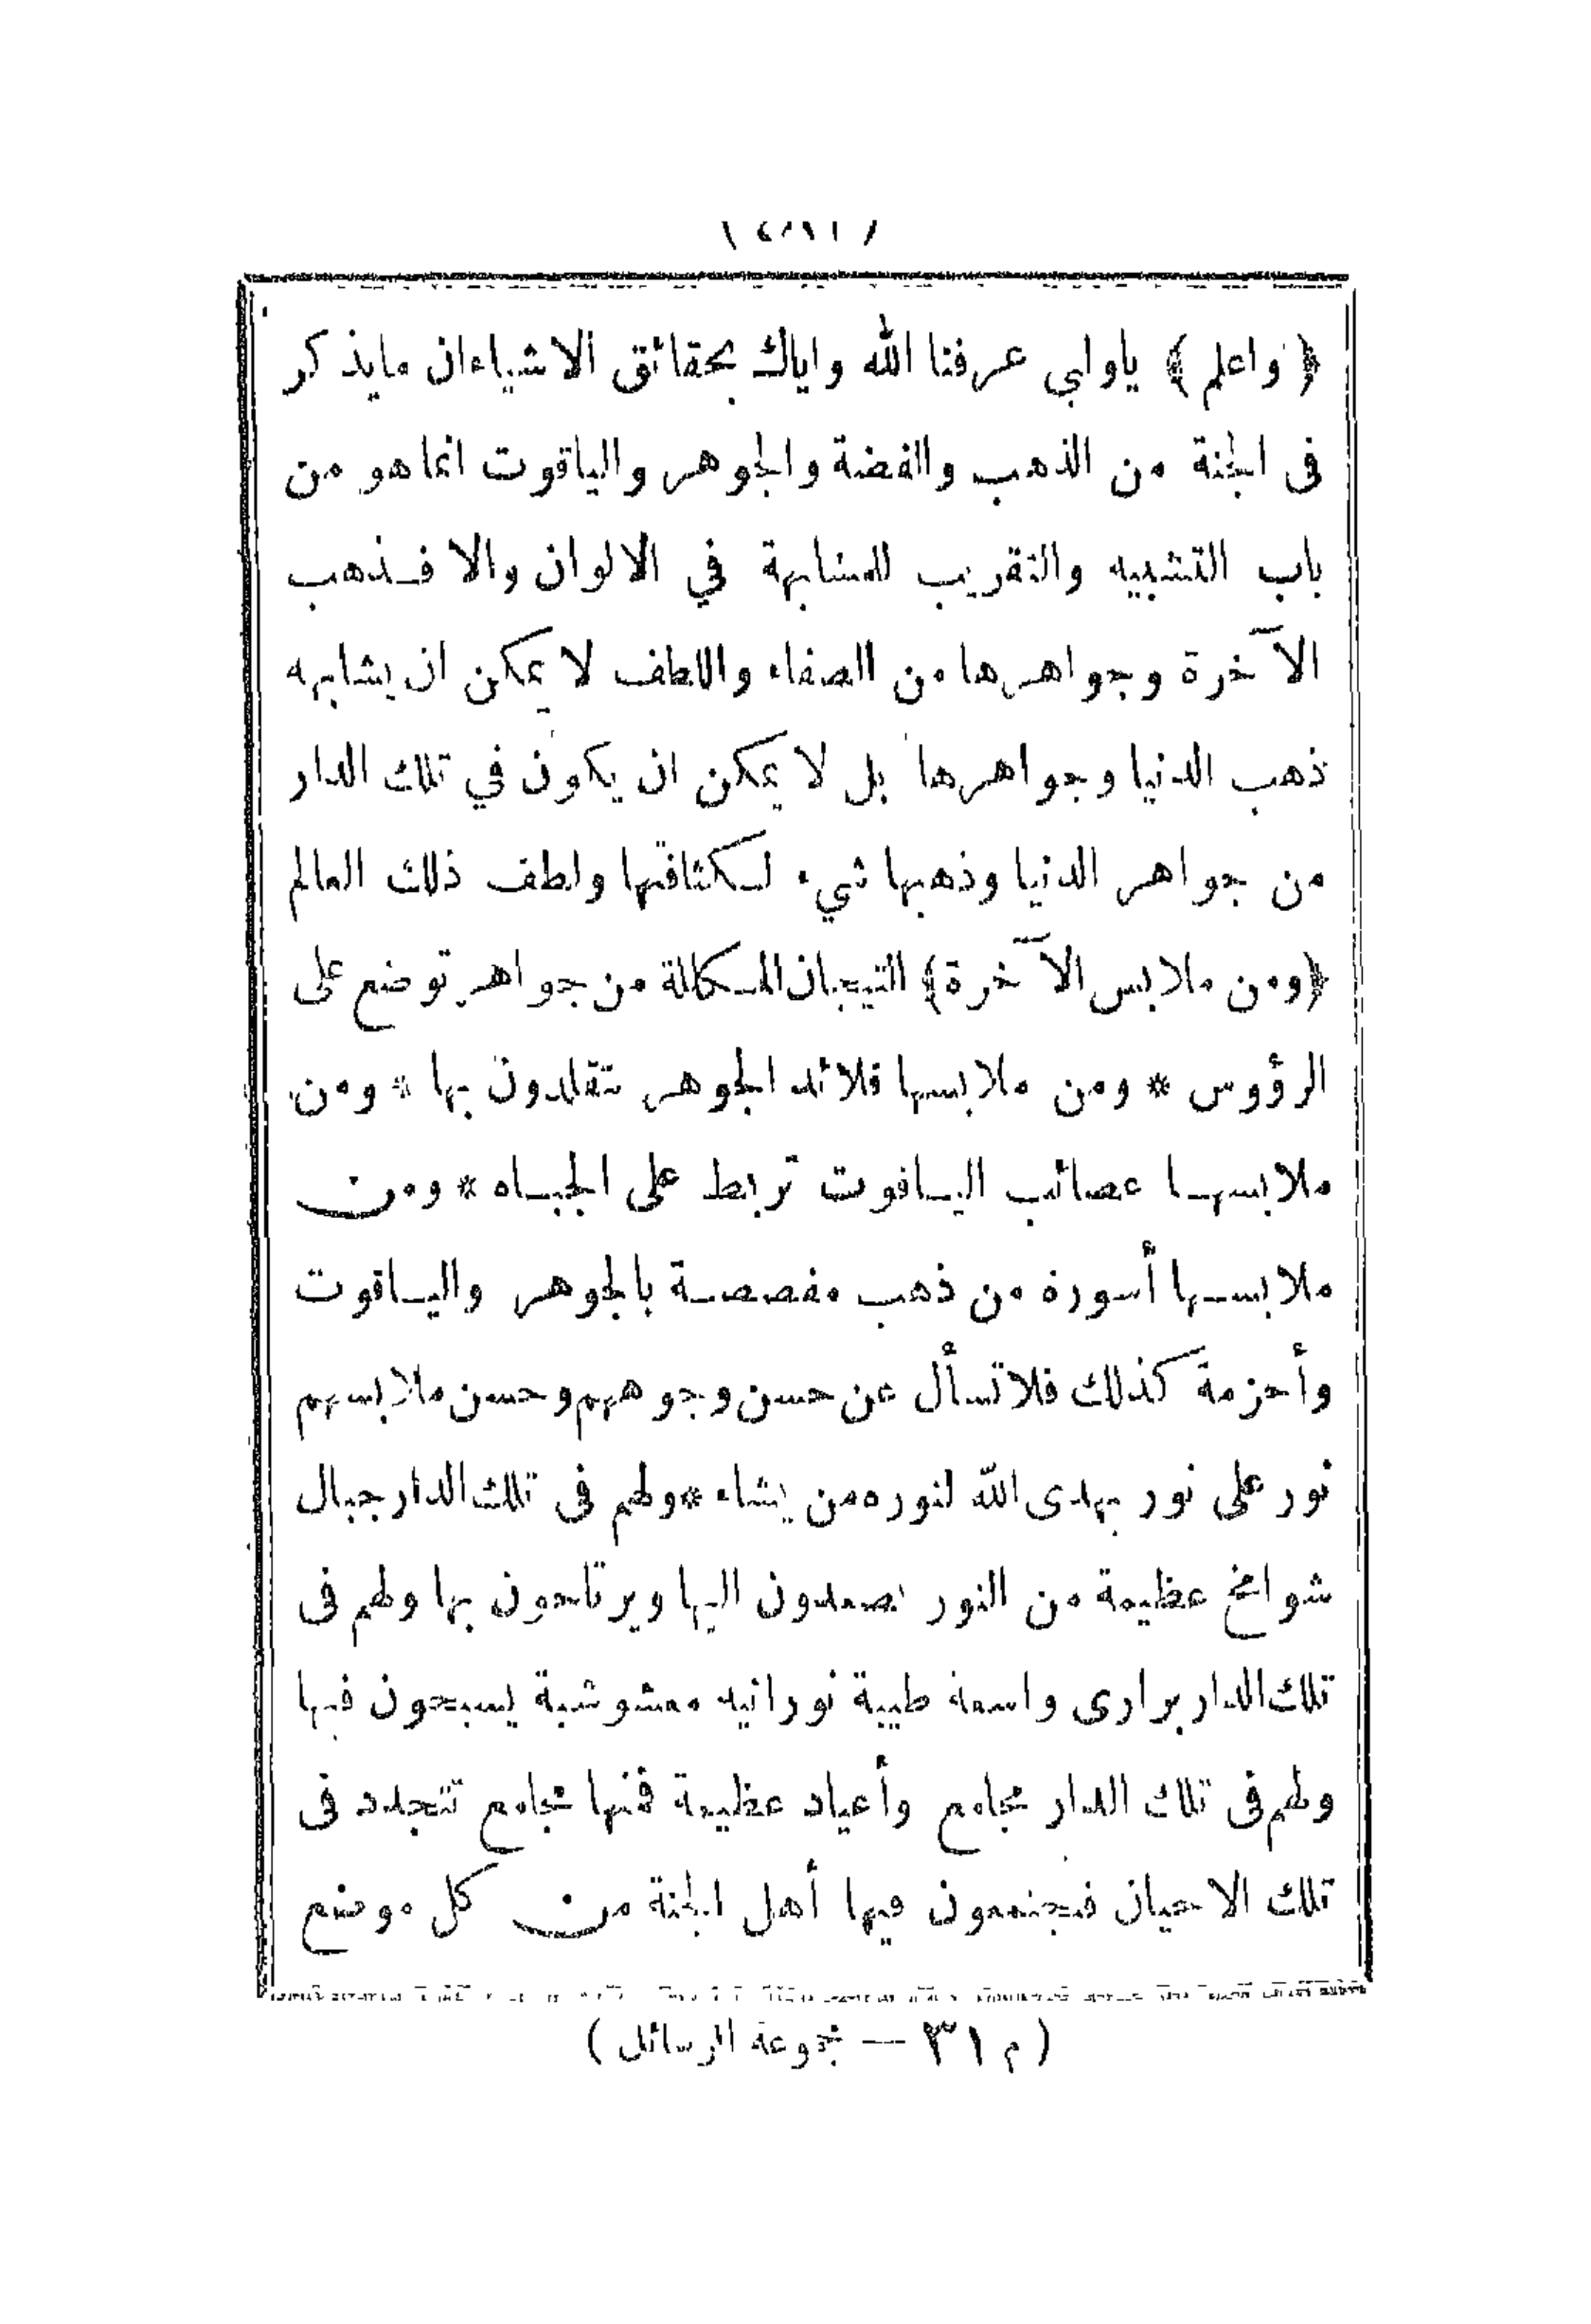 ﴿ واعلم ﴾ ياولى عرفنا الله واياك بحقائق الاشياء ان مايذكر
فى الجنة من الذهب والفضة والجوهر والياقوت انماهو من
باب التشبيه والتقريب للمشابهة في الالوان والا فذهب
الآخرة وجواهرها من الصفاء واللطف لا يمكن ان يشابهه
ذهب الدنيا وجواهرها بل لا يمكن ان يكون في تلك الدار
من جواهر الدنيا وذهبها شيء لكثافتها ولطف ذلك العالم
﴿ومن ملابس الآخرة﴾ التيجان المكللة من جواهر توضع على
الرؤوس * ومن ملابسها قلائد الجوهر تتقلدون بها * ومن
ملابسها عصائب الياقوت تربط على الجباه * ومن
ملابسها أسورة من ذهب مفصصة بالجوهر والياقوت
وأحزمة كذلك فلاتسأل عن حسن وجوههم وحسن ملابسهم
نور على نور يهدى الله لنوره من يشاء * ولهم فى تلك الدار جبال
شوامخ عظيمة من النور يصعدون اليها ويرتاحون بها ولهم فى
تلك الدار برارى واسعة طيبة نورانيه معشوشبة يسبحون فيها
ولهم فى تلك الدار مجامع وأعياد عظيمة فمنها مجامع تتجدد فى
تلك الاحيان فيجتمعون فيها أهل الجنة من كل موضع
( م ٣١ — مجموعة الرسائل )